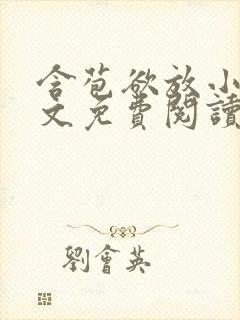 含苞欲放小
文免費閱讀
劉會英